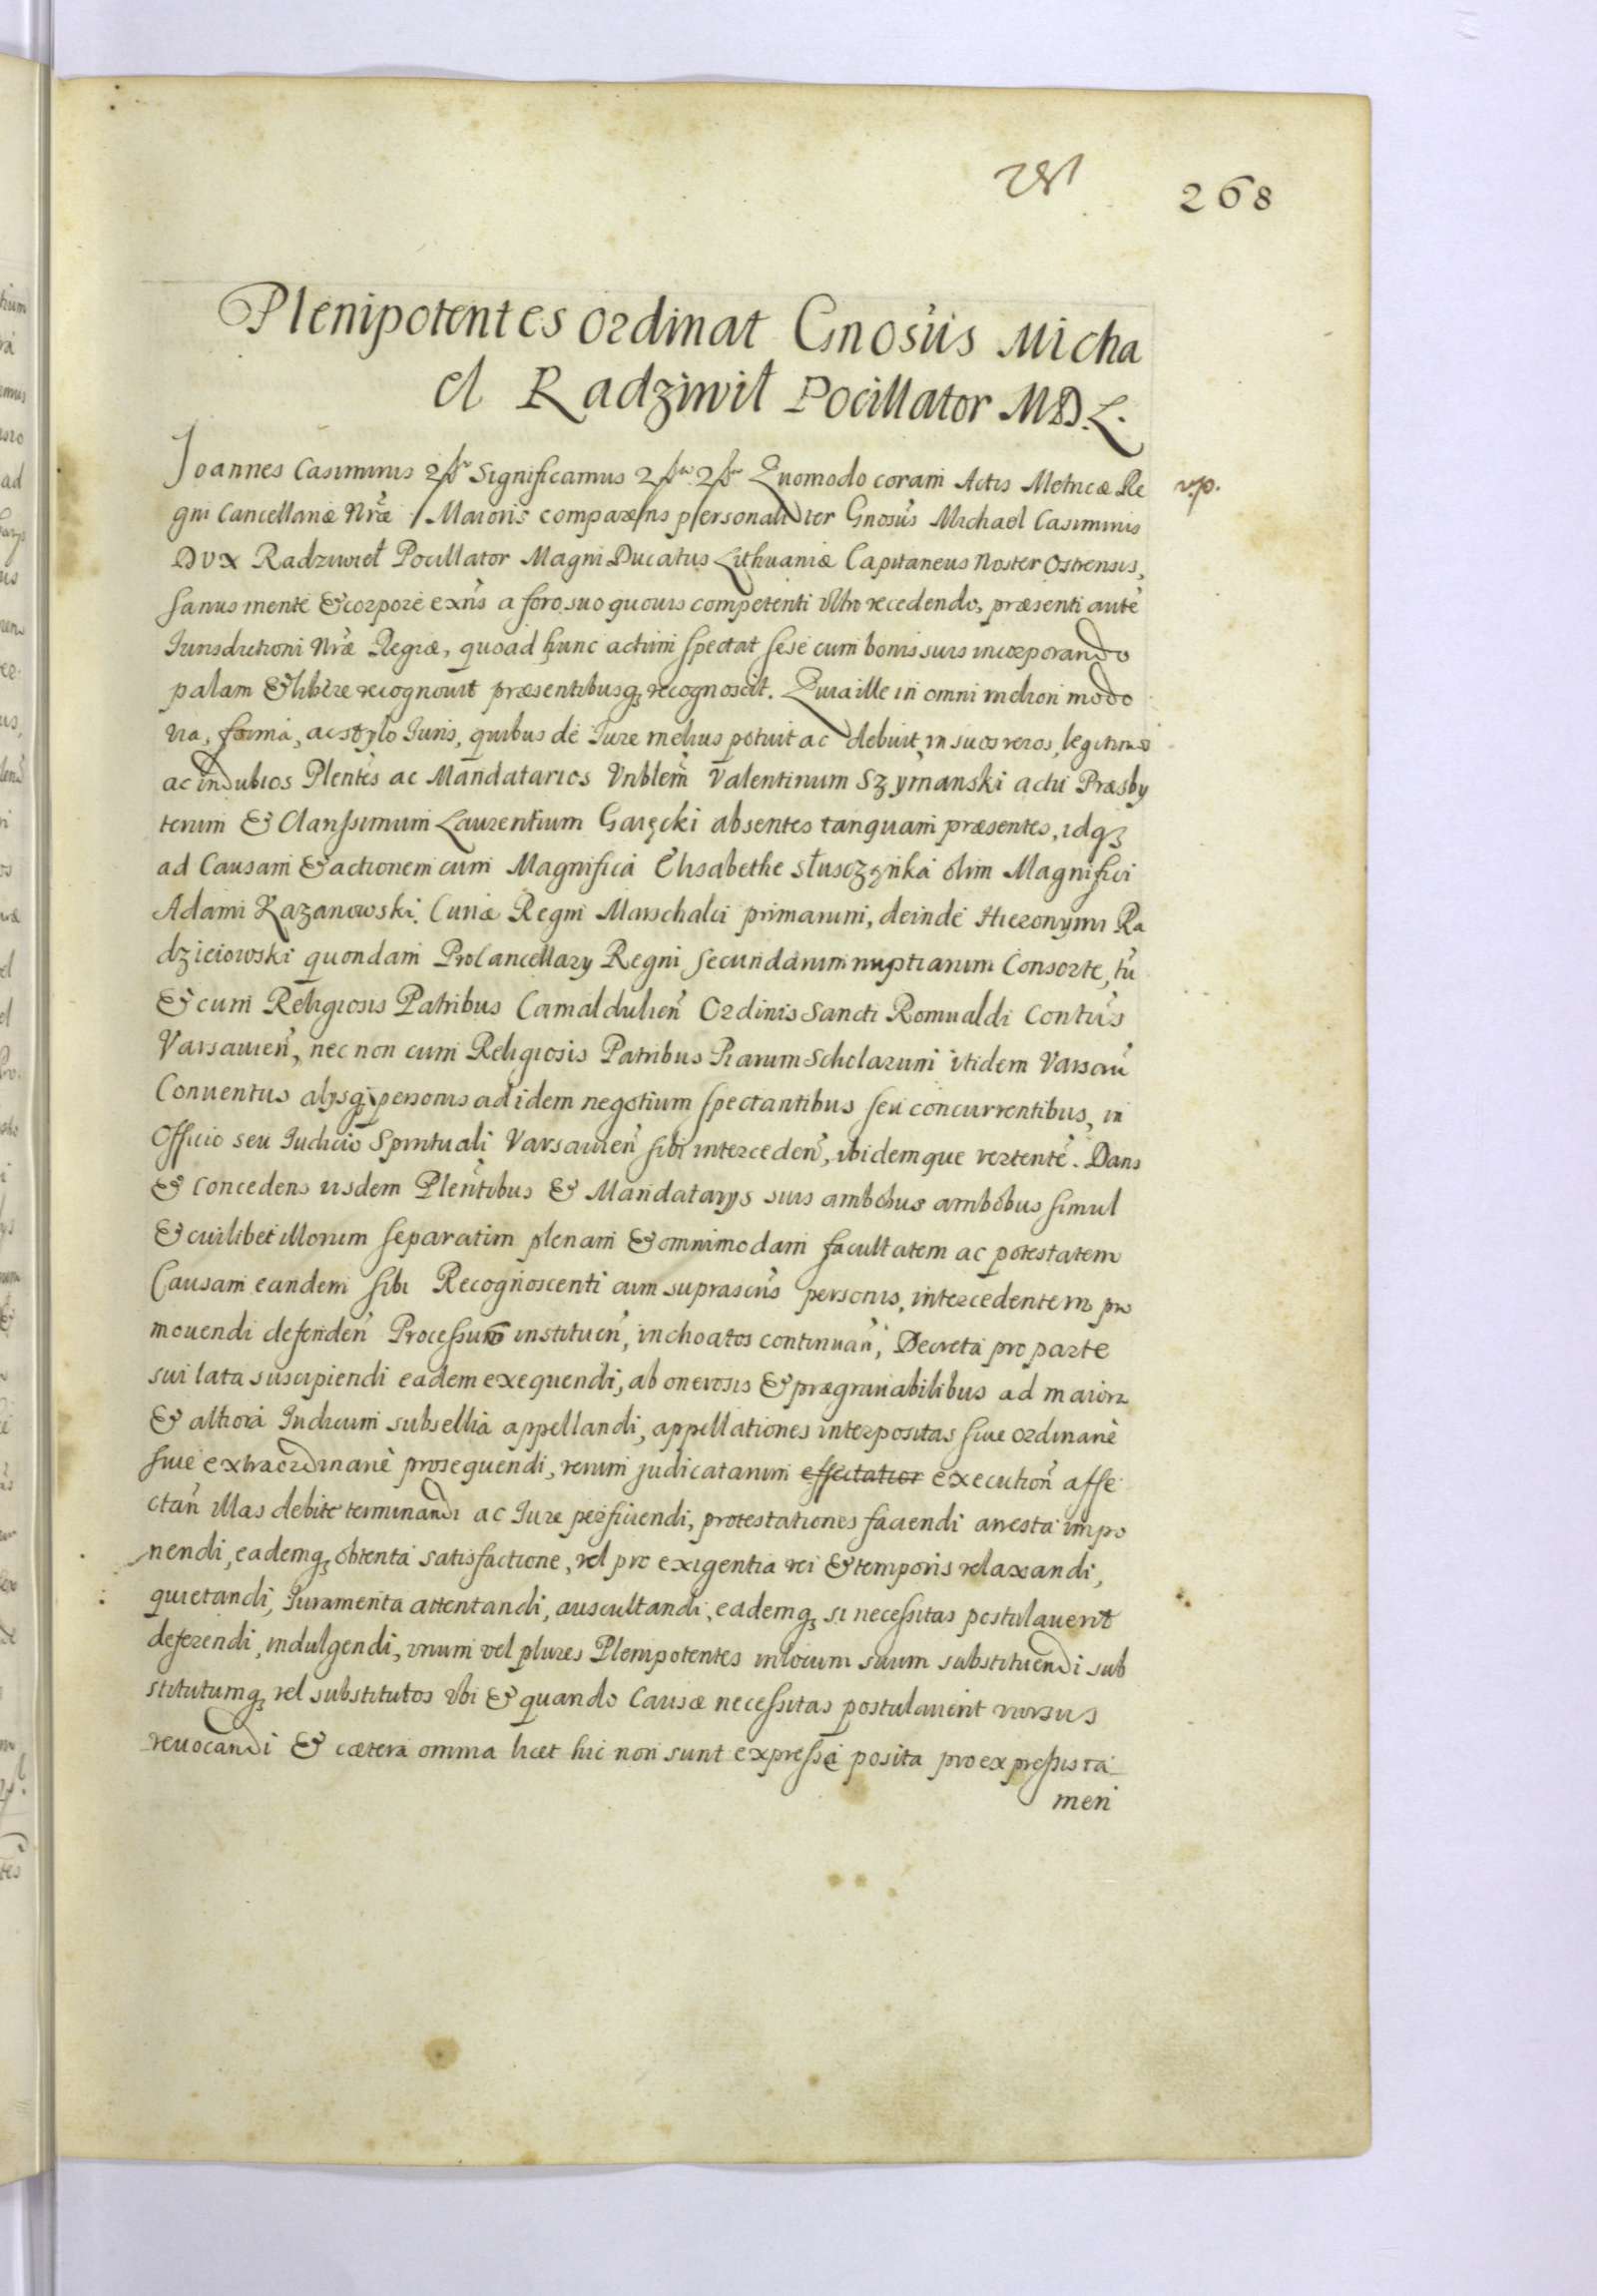 268
Plenipotentes ordinat Gnosus Micha
el Radziwił Pocillator M.D.L.
Joannes Casimirus Significamus Quomodo coram Actis Metricæ Re
gni Cancellariæ Nræ Maioris comparens personaliter Gnosus Michael Casimirus
Dux Radziwieł Pocillator Magni Ducatus Lithuaniæ Capitaneus Noster Ostrensis,
sanus mente & corpore exns a foro suo quouis competenti vltro recedendo, præsenti aute
Iurisdictioni Nræ Regiæ, quoad hunc actum spectat sese cum bonis suis incorporando
palam & libere recognouit præsentibusq recognoscit. Quia ille in omni meliori modo
via, forma, ac stylo Iuris, quibus de Iure melius potuit ac debuit, in suos veros, legitimos
ac indubios Plentes ac Mandatarios Vnblem Valentinum Szymanski actu Præsby
terum & Clarissimum Laurentium Garęcki absentes tanquam præsentes, idq
ad Causam & actionem cum Magnifica Elisabethe Słusczzńka olim Magnifici
Adami Kazanowski, Curiæ Regni Marschalci primarum, deinde Hieronymi Ra
dzieiowski quondam Procancellary Regni secundarum nuptiarum Consorte, tu
& cum Religiosis Patribus Camaldulien Ordinis Sancti Romualdi Contus
Varsauien, nec non cum Religiosis Patribus Piarum Scholarum itidem Varsau
Conuentus alysq personis ad idem negotium spectantibus seu concurrentibus, in
Officio seu Iudicio Spirituali Varsauien sibi interceden, ibidemque vertente. Dans
& Concedens iisdem Plentibus & Mandatarys suis ambobus ambobus simul
& cuilibet illorum separatim plenam & omnimodam facultatem ac potestatem
Causam eandem sibi Recognoscenti cum suprascris personis, intercedentem pro
mouendi defenden Processum instituen, inchoatos continuan, Decreta pro parte
sui lata suscipiendi eadem exequendi, ab onerosis & prægrauabilibus ad maiora
& altiora Iudicum subsellia appellandi, appellationes interpositas siue ordinarie
siue extraordinarie prosequendi, rerum judicatarum effectatior execution affe
ctan illas debite terminandi ac Iure perficiendi, protestationes faciendi arresta impo
nendi, eademq obtenta satisfactione, vel pro exigentia rei & temporis relaxandi,
quietandi, Iuramenta attentandi, auscultandi, eademq si necessitas postulauerit
deferendi, indulgendi, vnum vel plures Plenipotentes in locum suum substituendi sub
stitutumq vel substitutos vbi & quando Causæ necessitas postulauerit rursus
reuocandi & cætera omnia licet hic non sunt expresse posita pro expressis ta
men